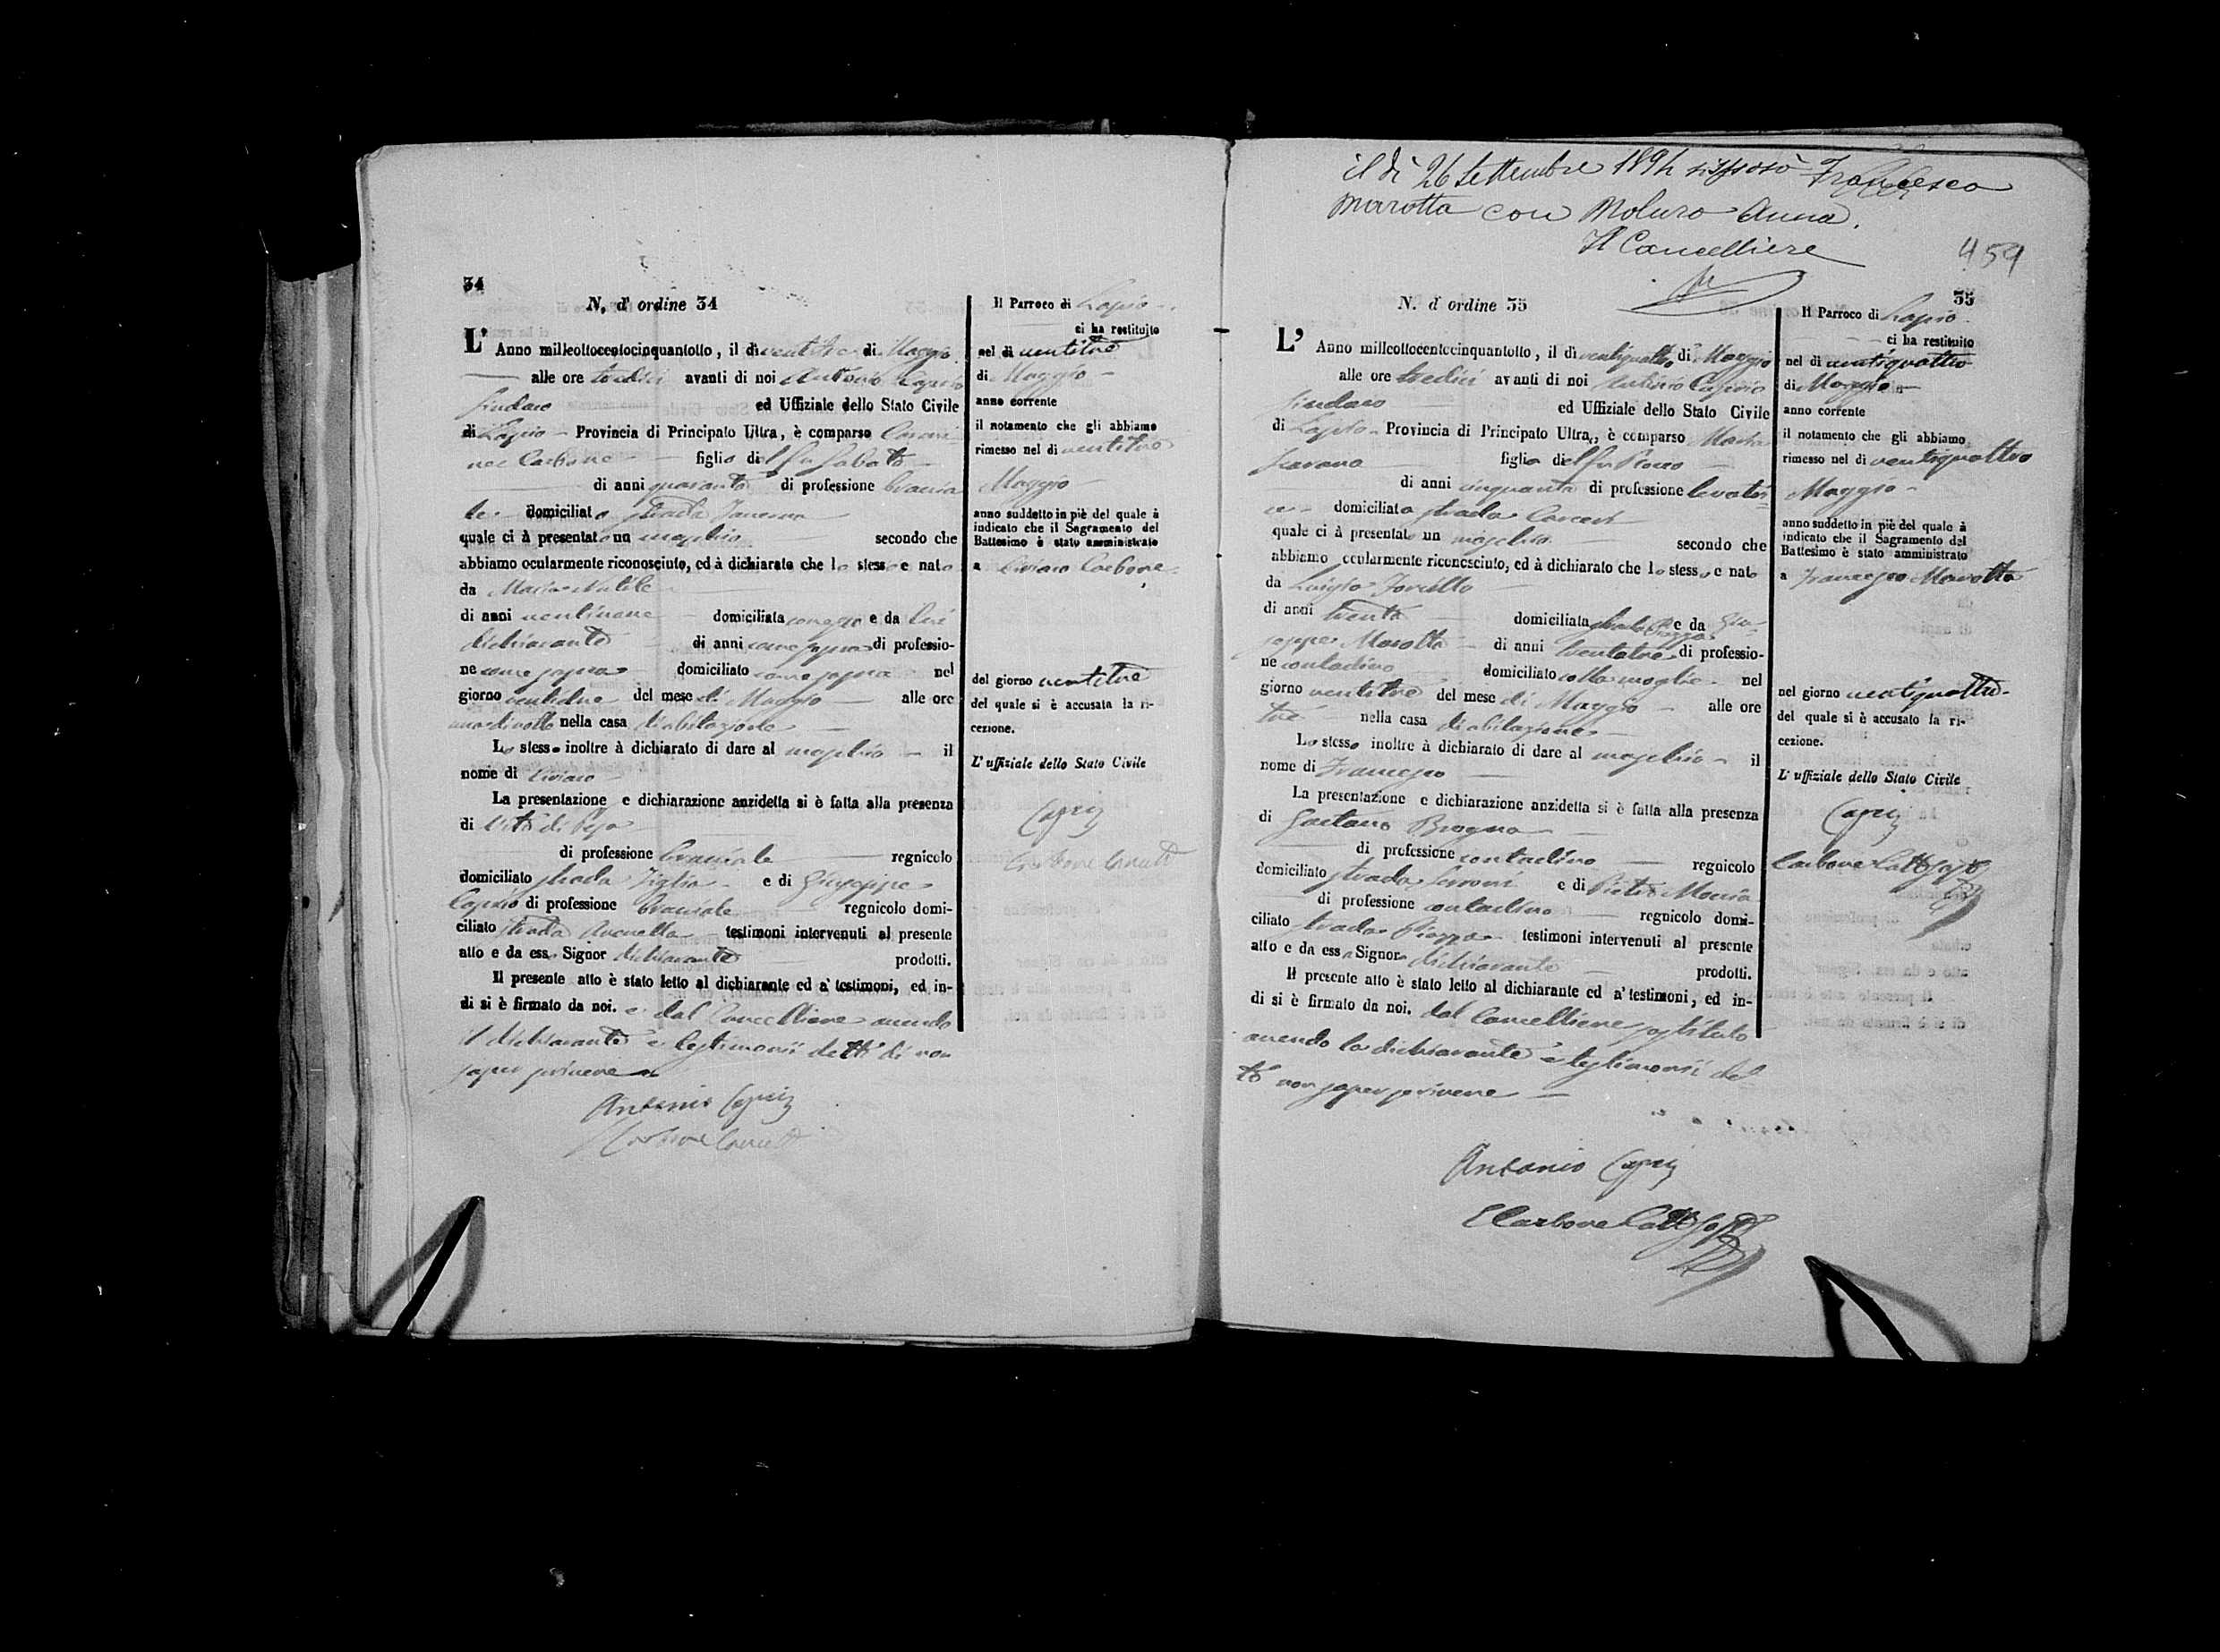 34
N. d' ordine 34
L' Anno milleottocentocinquantotto, il dì ventitre di Maggio
alle ore tredici avanti di noi Antonio Caprio
Sindaco ed Uffiziale dello Stato Civile
di Lapio Provincia di Principato Ultra, è comparso
Carbone figlio del fu Sabato
di anni quaranta di professione braccia
le domiciliato strada
quale ci à presentato un maschio secondo che
abbiamo ocularmente riconosciuto, ed à dichiarato che lo stesso e nato
da Maria
di anni ventinove domiciliata come sopra e da lui
dichiarante di anni come sopra di professio-
ne come sopra domiciliato come sopra nel
giorno ventidue del mese di Maggio alle ore
nella casa di abitazione
Lo stesso inoltre à dichiarato di dare al maschio il
nome di Ciriaco
La presentazione e dichiarazione anzidetta si è fatta alla presenza
di Vito di
di professione bracciale regnicolo
domiciliato strada Tiglio e di Giuseppe
Caprio di professione bracciale regnicolo domi-
ciliato strada testimoni intervenuti al presente
atto e da esso Signor dichiarante prodotti.
Il presente atto è stato letto al dichiarante ed a' testimoni, ed in-
di si è firmato da noi. e dal Cancelliere avendo
il dichiarante e testimonii detti di non
saper scrivere
Antonio Caprio
Carbone
Il Parroco di Lapio
ci ha restituito
nel dì ventitre
di Maggio
anno corrente
il notamento che gli abbiamo
rimesso nel dì ventitre
Maggio
anno suddetto in piè del quale à
indicato che il Sagramento del
Battesimo è stato amministrato
a Ciriaco Carbone
del giorno ventitre
del quale si è accusata la ri-
cezione.
L' uffiziale dello Stato Civile
Caprio
Carbone
il dì 26 Settembre 1894 si sposò Francesco
Marotta con Moluro Anna.
Il Cancelliere
459
35
N. d' ordine 35
L' Anno milleottocentocinquantotto, il dì ventiquattro di Maggio
alle ore tredici avanti di noi Antonio Caprio
Sindaco ed Uffiziale dello Stato Civile
di Lapio Provincia di Principato Ultra, è comparso Maria
figlia del fu Rocco
di anni cinquanta di professione levatri
ce domiciliata strada Carceri
quale ci à presentato un maschio secondo che
abbiamo ocularmente riconosciuto, ed à dichiarato che lo stesso e nato
da
di anni trenta domiciliata strada Piazza e da Giu-
seppe Marotta di anni di professio-
ne contadino domiciliato colla moglie nel
giorno ventitre del mese di Maggio alle ore
tre nella casa di abitazione
Lo stesso inoltre à dichiarato di dare al maschio il
nome di Francesco
La presentazione e dichiarazione anzidetta si è fatta alla presenza
di Gaetano
di professione contadino regnicolo
domiciliato strada e di Pietro
di professione contadino regnicolo domi-
ciliato strada Piazza testimoni intervenuti al presente
atto e da essa Signora dichiarante prodotti.
Il presente atto è stato letto al dichiarante ed a' testimoni, ed in-
di si è firmato da noi. dal Cancelliere sostituto
avendo la dichiarante e testimonii det
to non saper scrivere
Antonio Caprio
Carbone
Il Parroco di Lapio
ci ha restituito
nel dì ventiquattro
di Maggio
anno corrente
il notamento che gli abbiamo
rimesso nel dì ventiquattro
Maggio
anno suddetto in piè del quale à
indicato che il Sagramento del
Battesimo è stato amministrato
a Francesco Marotta
nel giorno ventiquattro
del quale si è accusato la ri-
cezione.
L' uffiziale dello Stato Civile
Caprio
Carbone